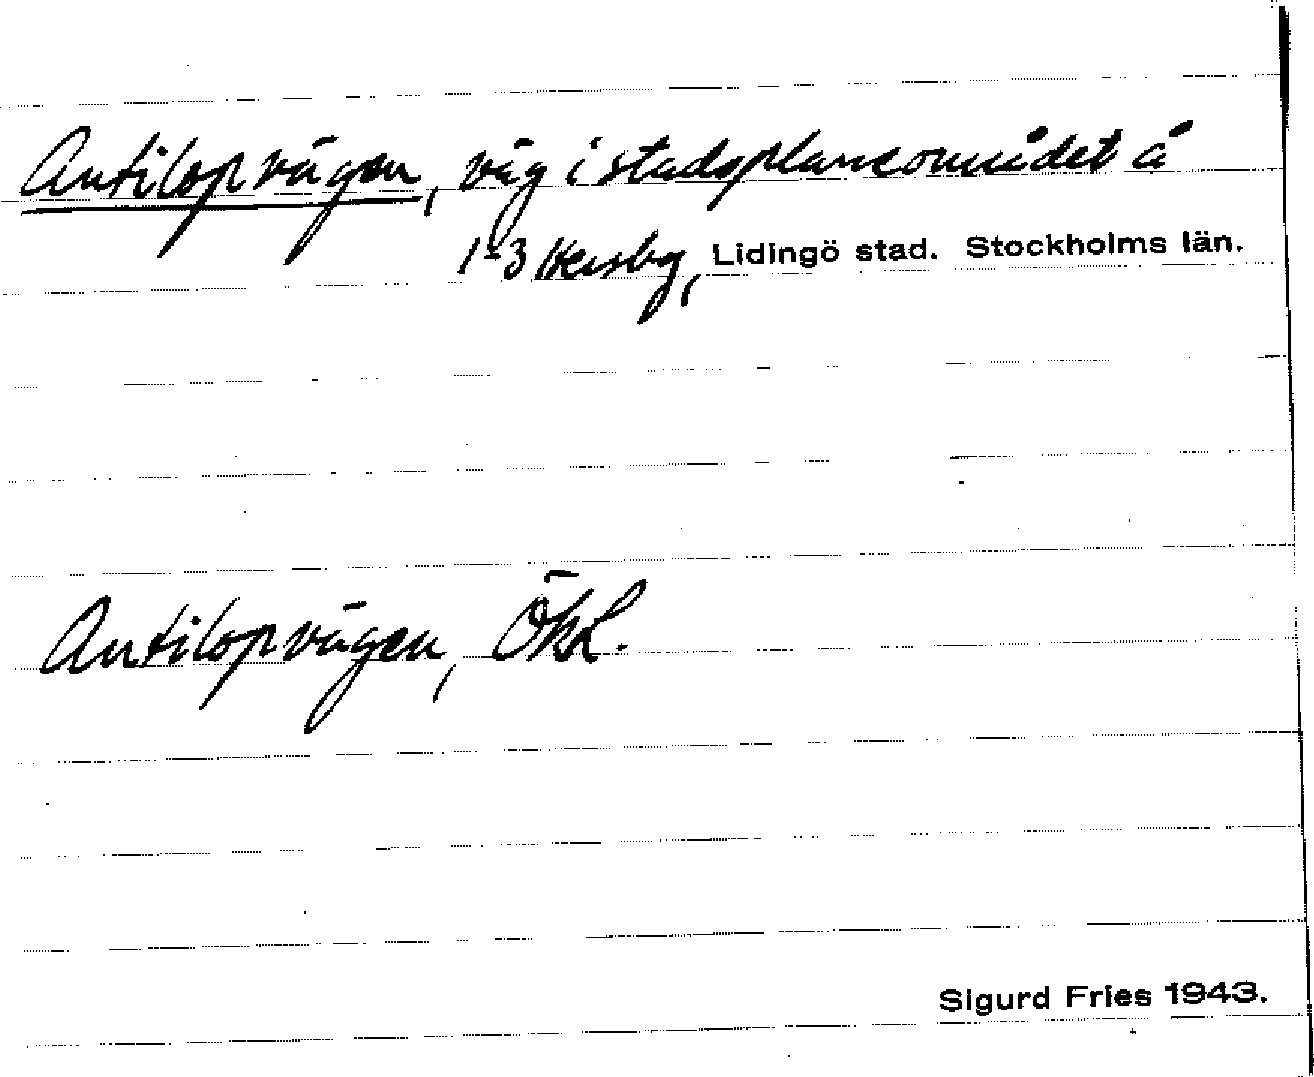 Antilopvägen, väg i stadsplaneområdet å
1-3 Hersby, Lidingö stad. Stockholms län.
Antilopvägen, ÖkL.
Sigurd Fries 1943.